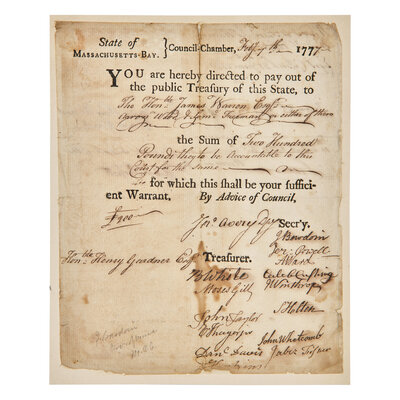 State of
MASSACHUSETTS-BAY.
Council-Chamber, Feby 7th 1777
YOU are hereby directed to pay out of
the public Treasury of this State, to
The Honble James Warren Esqr
& Saml Freeman or either of them
the Sum of Two Hundred
Pounds they to be Accountable to this
for the same
for which this shall be your suffici-
ent Warrant. By Advice of Council,
£200
Jno Avery Secr'y.
To the Honble Henry Gardner Esqr Treasurer.
J Bowdoin
Jer: Powell
A Ward
B White
Caleb Cushing
Moses Gill
J Winthrop
S Holten
John Taylor
John Whetcomb
Danl Davis
Jabez Fisher
Bowdoin